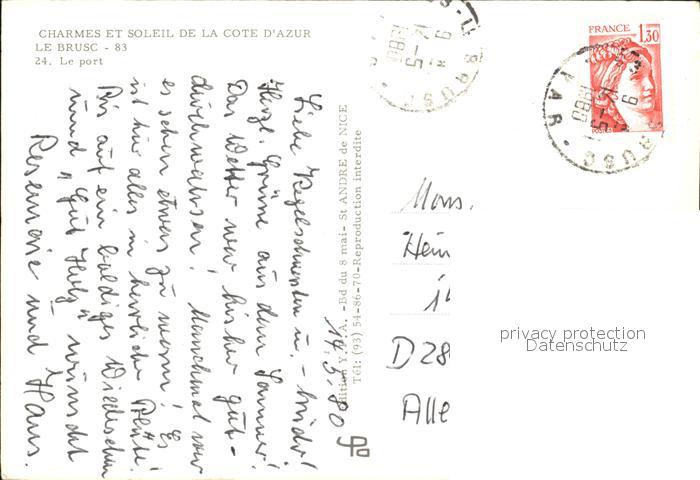 CHARMES ET SOLEIL DE LA COTE D'AZUR
LE BRUSC - 83
24. Le port
14.5.80
Liebe Kegelschwestern u. - brüder!
Herzl. Grüsse aus dem Sommer!
Das Wetter war bisher gut -
durchwachsen! Manchmal war
es schon etwas zu warm! Es
ist hier alles in herrlicher Blüte!
Bis auf ein baldiges Wiedersehen
und "Gut Holz" wünscht
Rosemarie und Hans.
-Bd du 8 mai- St ANDRE de NICE
Tél: (93) 54-86-70-Reproduction interdite
FRANCE
1,30
POSTES
LE BRUSC
9 H
12 - 5
1980
VAR
Mons.
Hein
D 28
Alle
privacy protection
Datenschutz